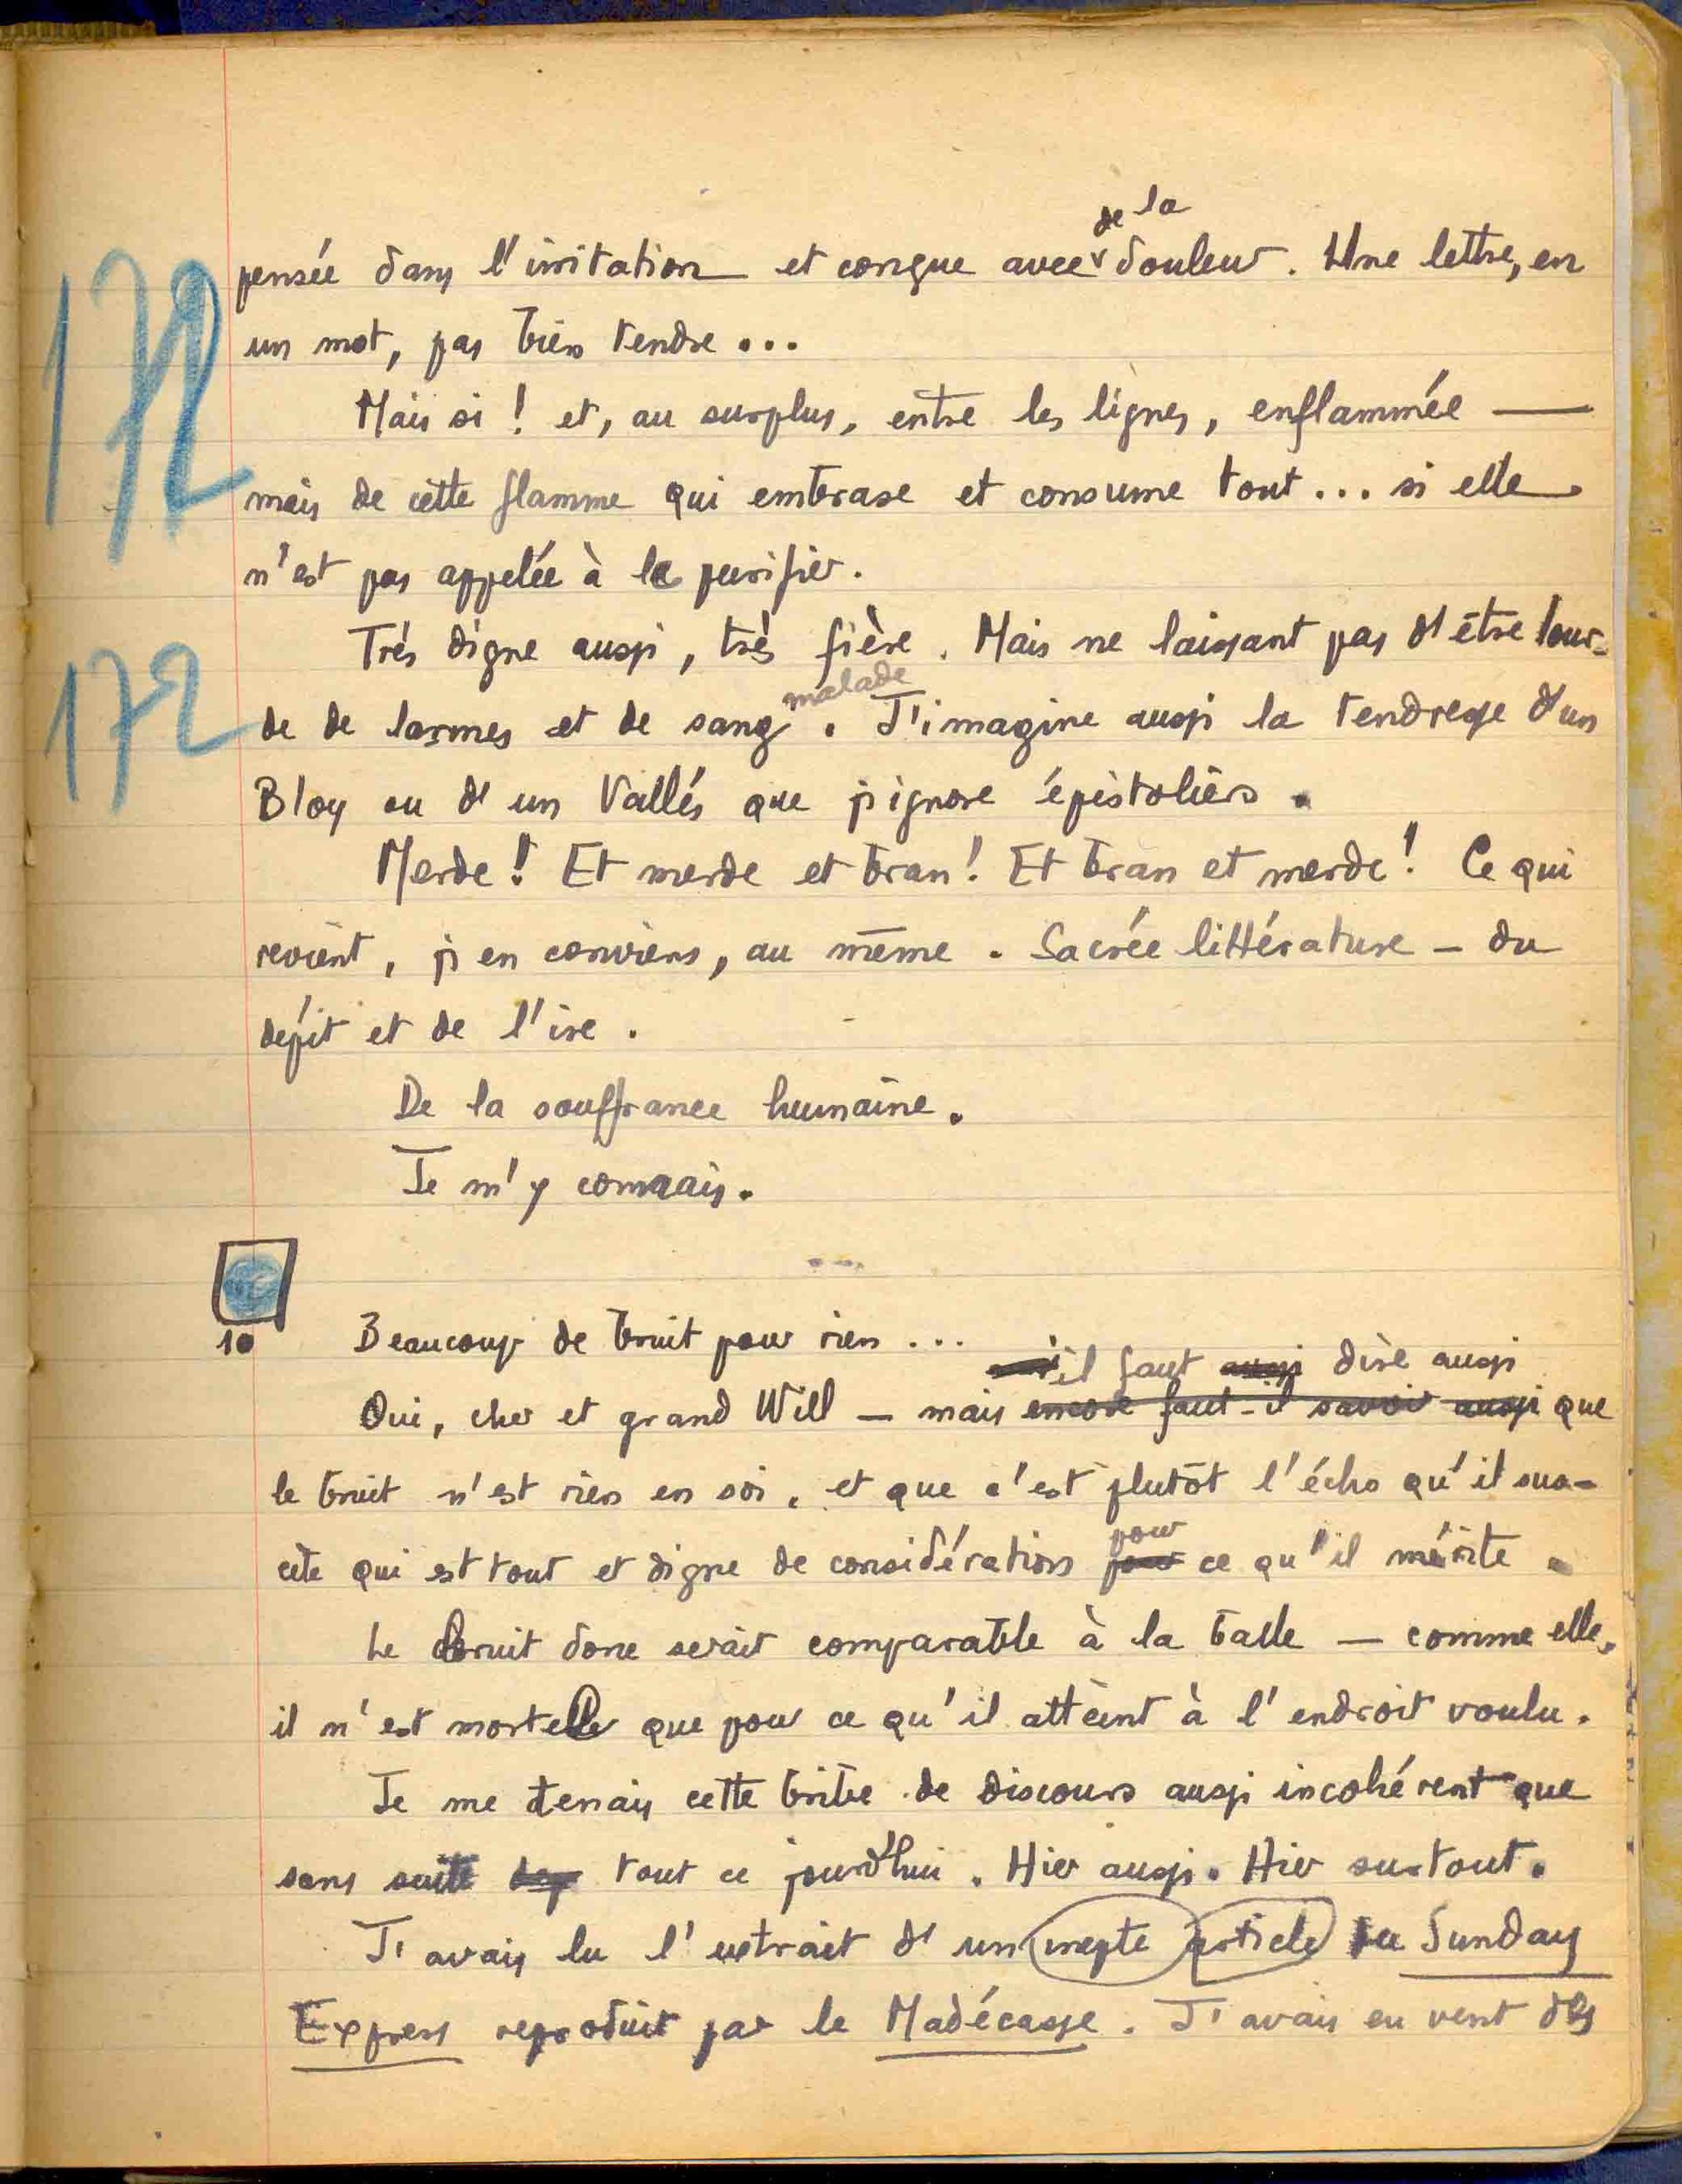 de la
pensée dans l'irritation et conçue avec douleur. Une lettre, en
un mot, pas bien tendre...
Mais si ! et, au surplus, entre les lignes, enflammée —
mais de cette flamme qui embrase et consume tout... si elle
n'est pas appelée à le purifier.
Très digne aussi, très fière. Mais ne laissant pas d'être lour-
malade
de de larmes et de sang. J'imagine aussi la tendresse d'un
Bloy ou d'un Vallès que j'ignore épistoliers.
Merde ! Et merde et bran ! Et bran et merde ! Ce qui
revient, j'en conviens, au même. Sacrée littérature – du
dépit et de l'ire.
De la souffrance humaine.
Je m'y connais.
172
172
10 Beaucoup de bruit pour rien...
il faut aussi dire aussi
Oui, cher et grand Will – mais encore faut-il savoir aussi que
le bruit n'est rien en soi, et que c'est plutôt l'écho qu'il sus-
pour
cite qui est tout et digne de considération pour ce qu'il mérite.
Le bruit donc serait comparable à la balle – comme elle,
il n'est mortel que pour ce qu'il atteint à l'endroit voulu.
Je me tenais cette bribe de discours aussi incohérent que
sans suite tout ce jourd'hui. Hier aussi. Hier surtout.
J'avais lu l'extrait d'un inepte article du Sunday
Express reproduit par le Madécasse. J'avais eu vent des